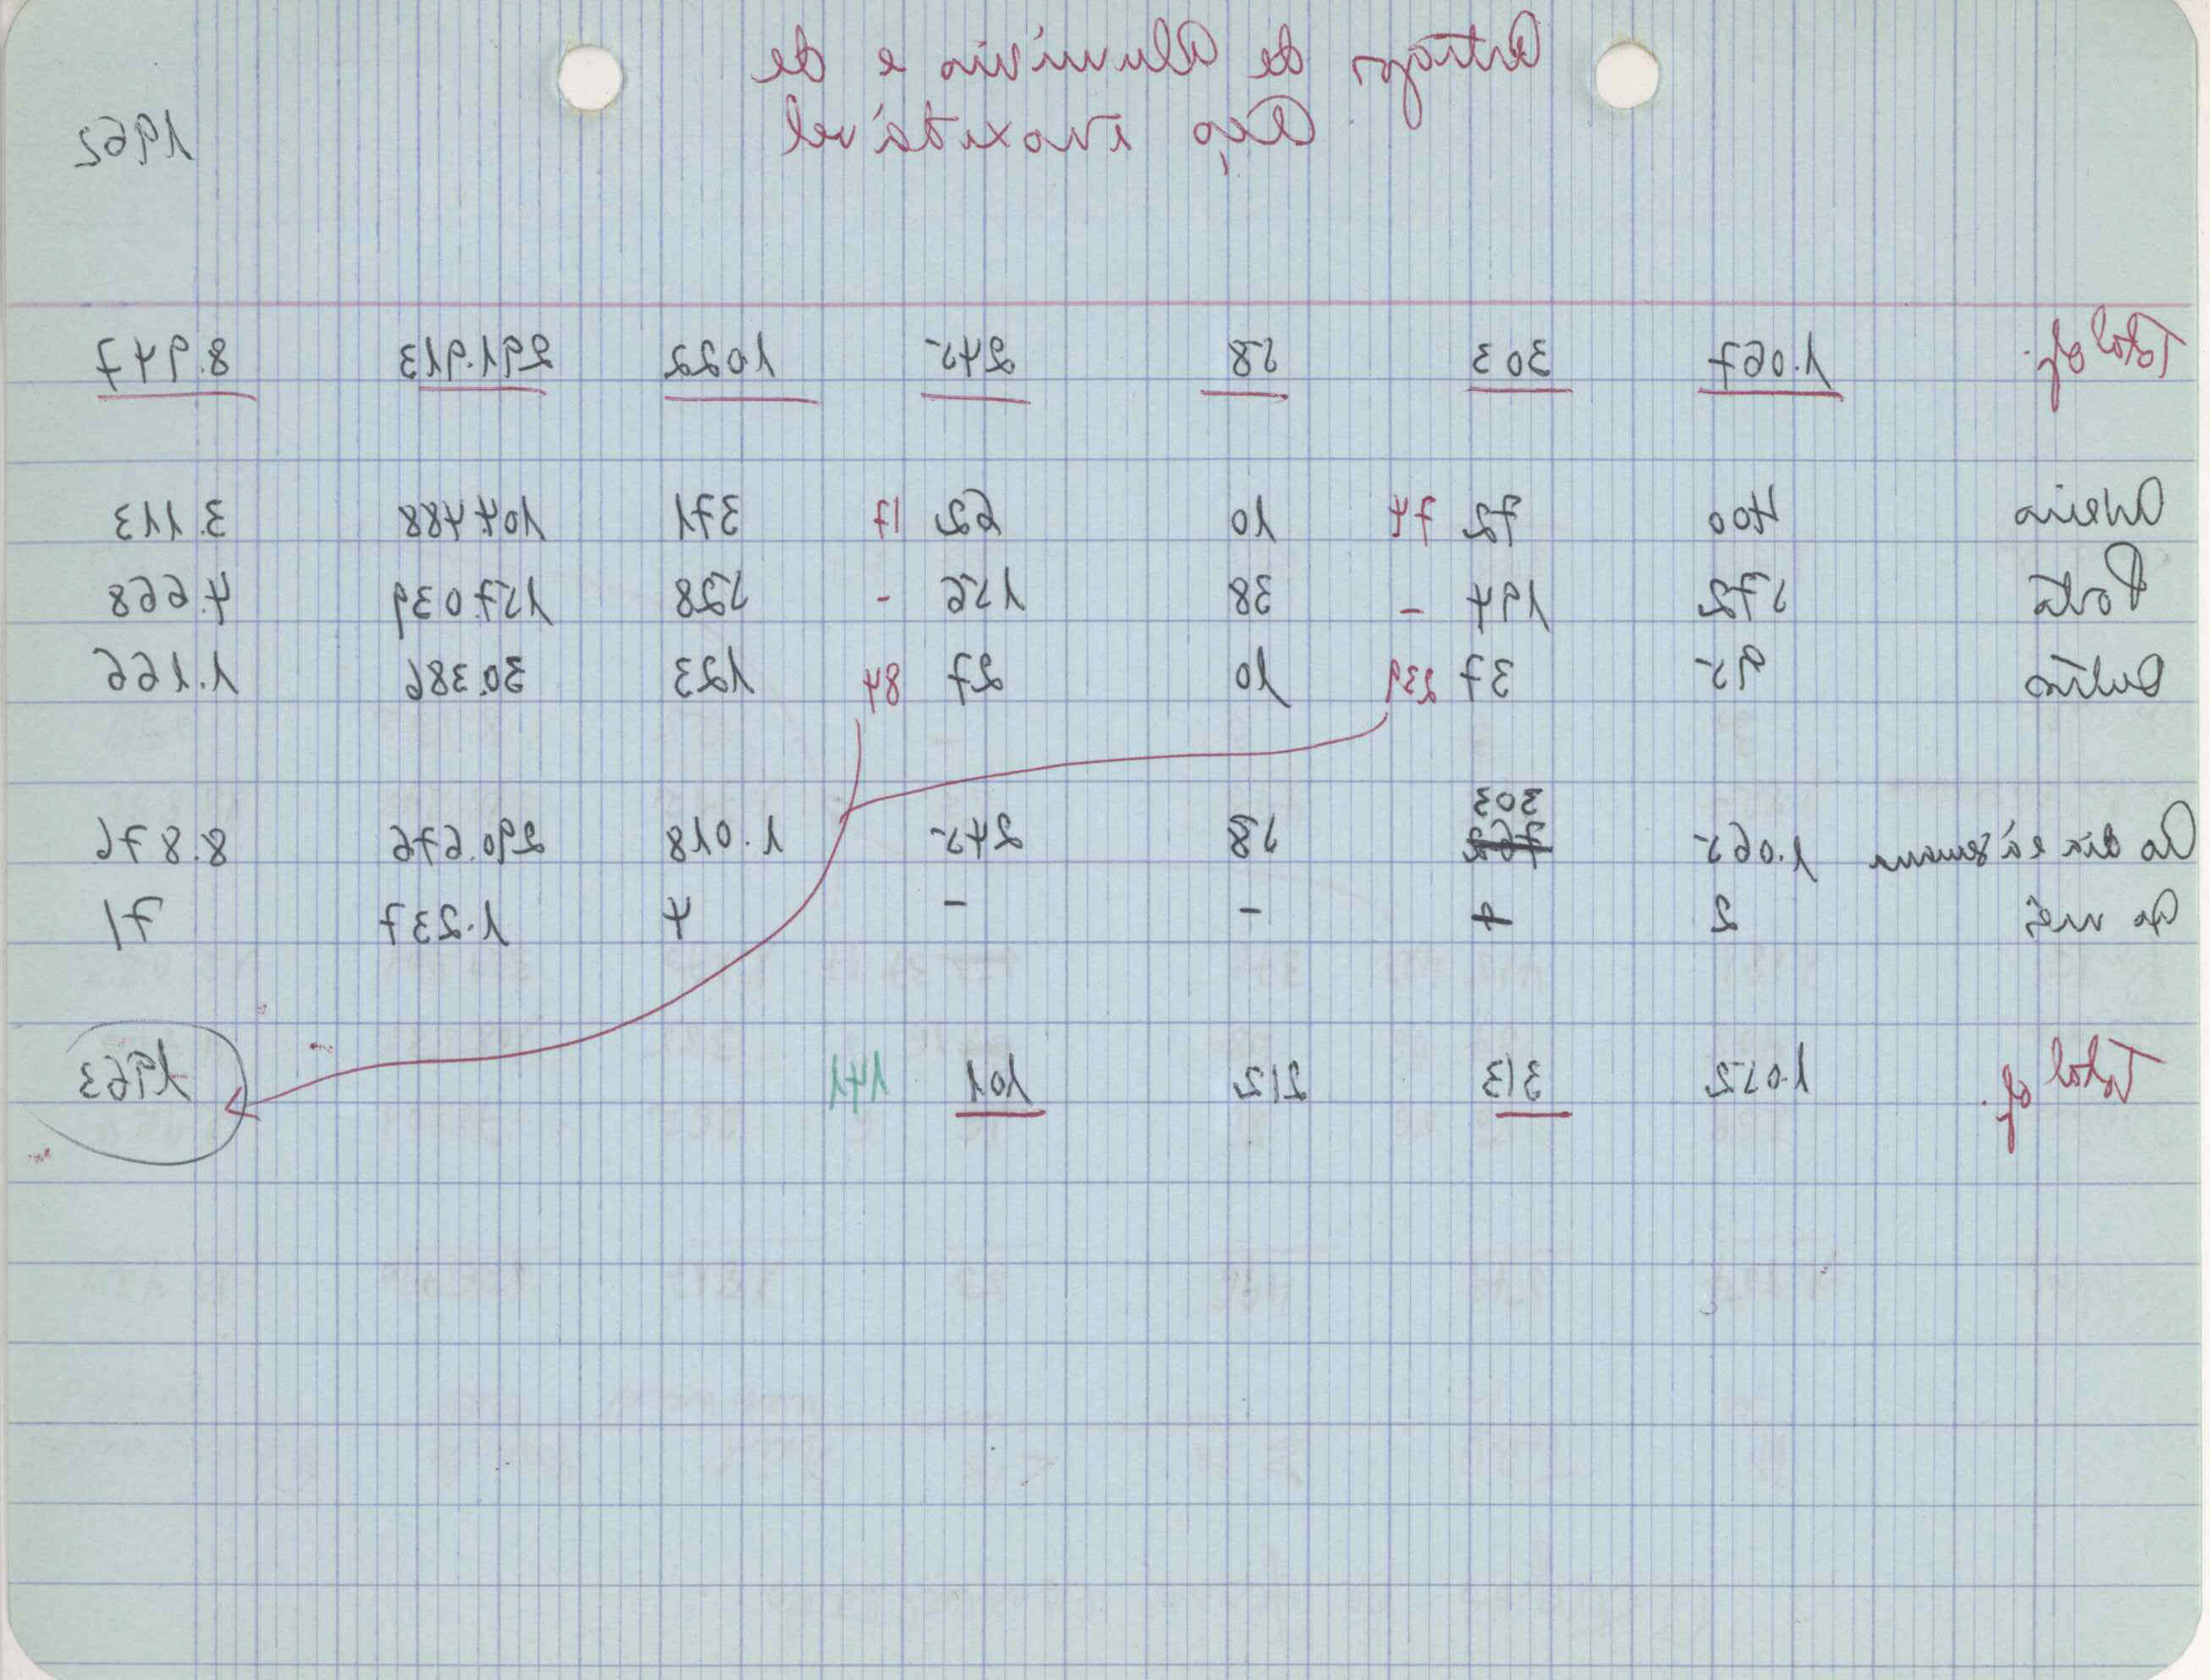 Artigos de Alumínio e de
Aço inoxidável
1962
Total of. 1.067 303 58 245 1022 291.913 8.947
Aveiro 400 72 74 10 62 17 371 104.488 3.113
Porto 572 194 - 38 156 - 528 157.039 4.668
Outros 95 37 239 10 27 84 123 30.386 1.166
303
Ao dia e à semana 1.065 58 245 1.018 290.676 8.876
Ao mês 2 - - 4 1.237 71
Total of. 1.052 313 212 101 141 1963